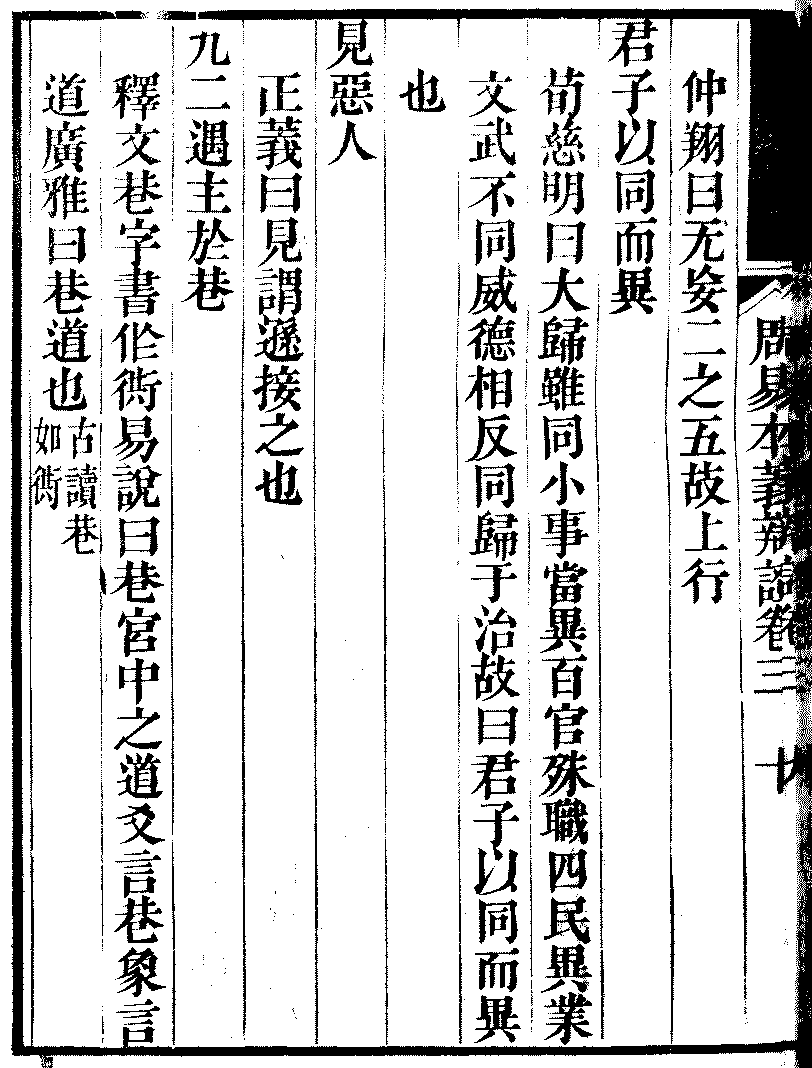 周易本義辨證卷三
仲翔曰无妄二之五故上行
君子以同而異
荀慈明曰大歸雖同小事當異百官殊職四民異業
文武不同威德相反同歸于治故曰君子以同而異
也
見惡人
正義曰見謂遜接之也
九二遇主於巷
釋文巷字書作衖易說曰巷宮中之道爻言巷象言
道廣雅曰巷道也古讀巷如衖